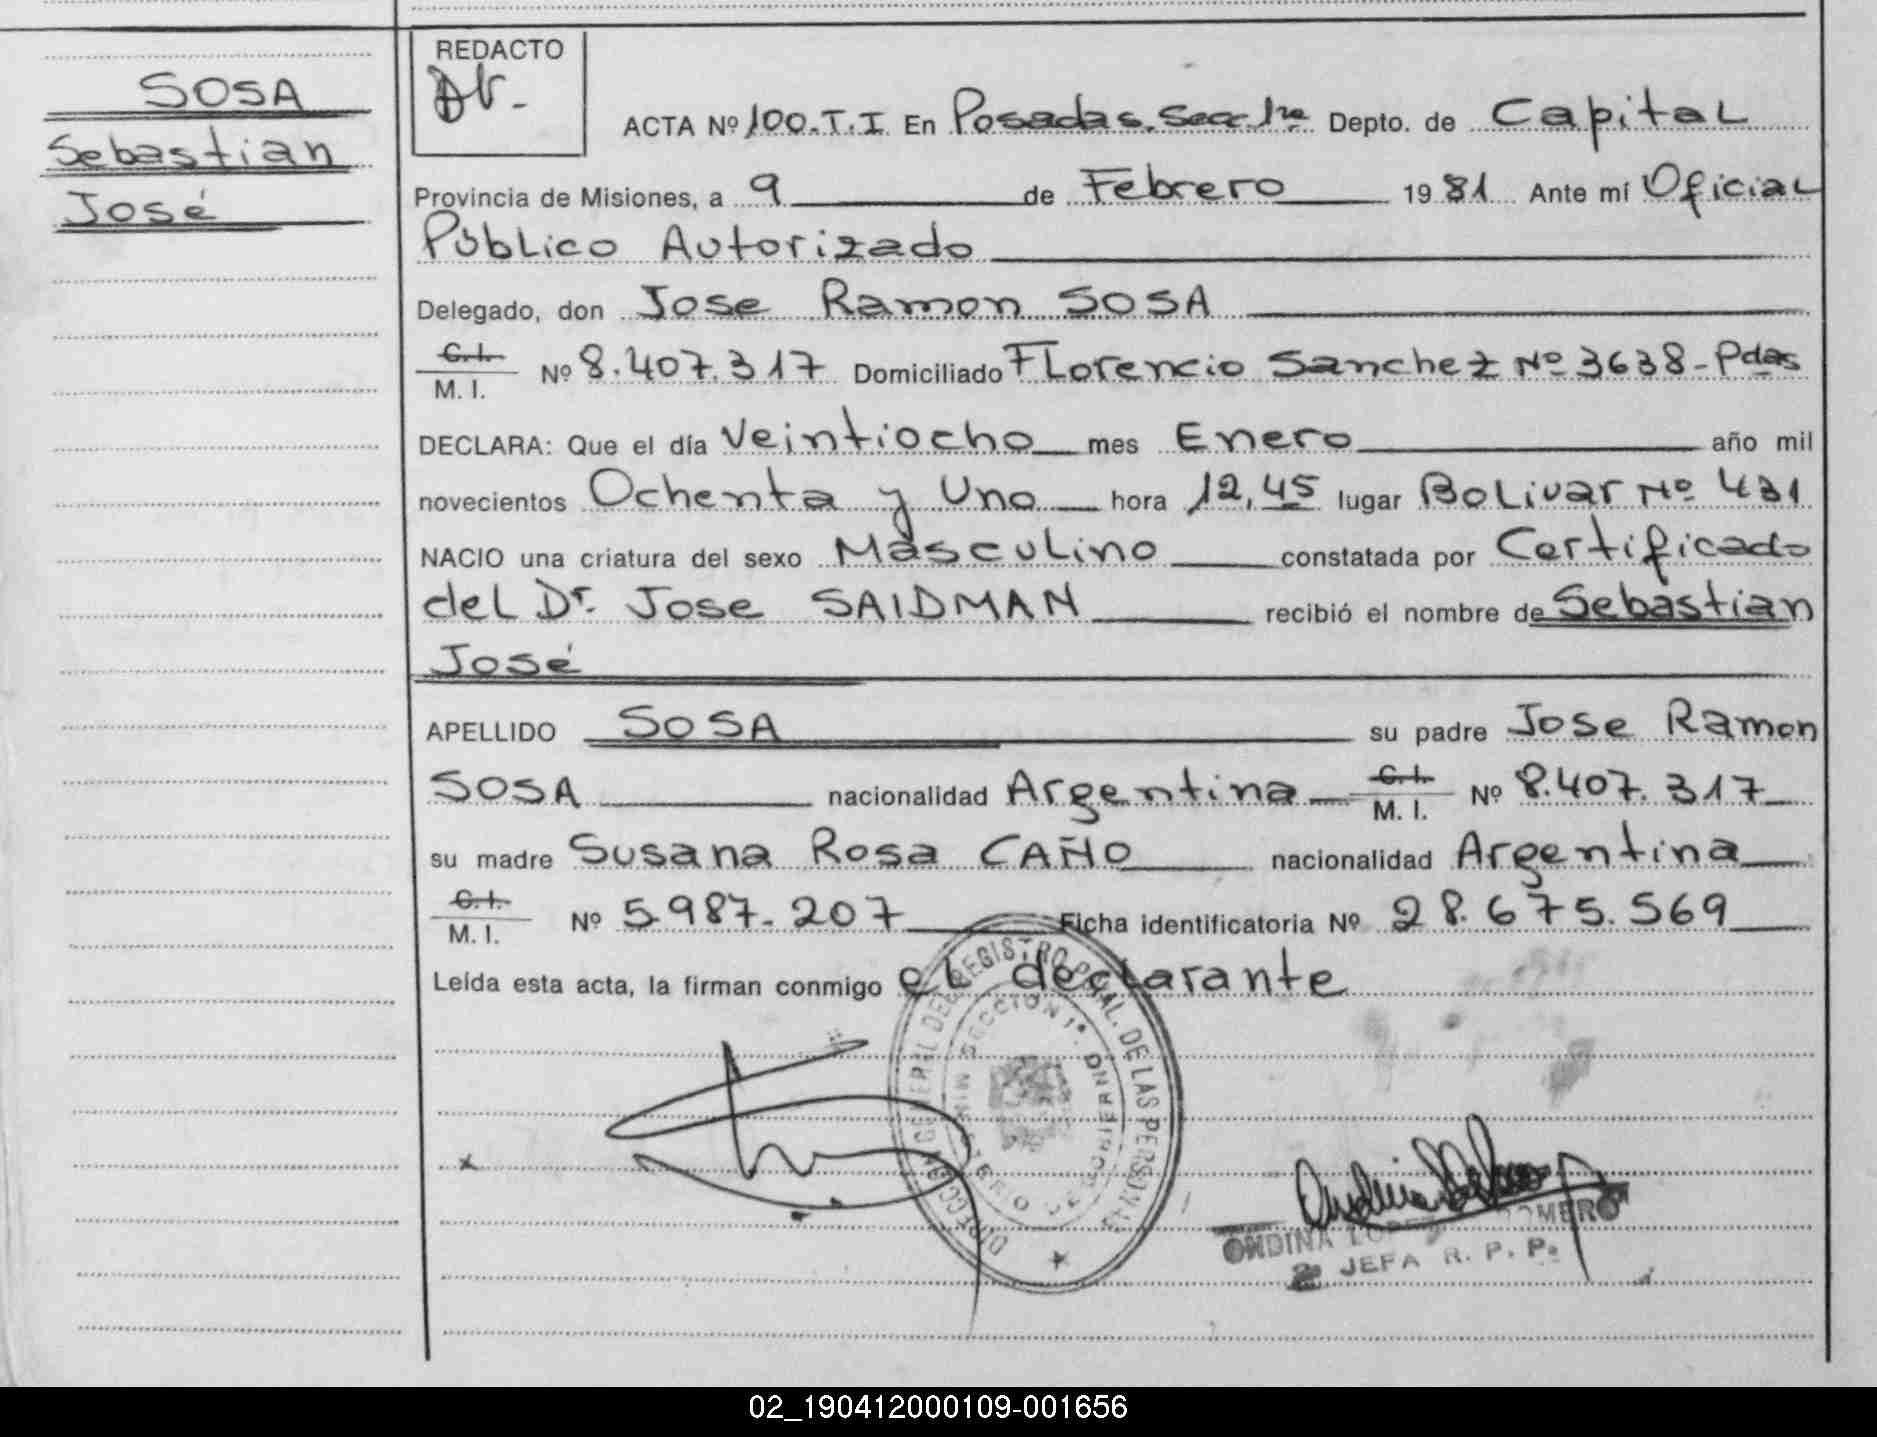 SOSA
Sebastian
José
REDACTO
ACTA Nº 100.T.I En Posadas. Secc. 1ra Depto. de Capital
Provincia de Misiones, a 9 de Febrero 1981 Ante mí Oficial
Público Autorizado
Delegado, don Jose Ramon SOSA
C.I.
M. I. Nº 8.407.317 Domiciliado Florencio Sanchez Nº 3638-Pdas
DECLARA: Que el día Veintiocho mes Enero año mil
novecientos Ochenta y Uno hora 12,45 lugar Bolivar Nº 431
NACIO una criatura del sexo Masculino constatada por Certificado
del Dr. Jose SAIDMAN recibió el nombre de Sebastian
José
APELLIDO SOSA su padre Jose Ramon
SOSA nacionalidad Argentina C.I. M. I. Nº 8.407.317
su madre Susana Rosa CAÑO nacionalidad Argentina
C.I.
M. I. Nº 5.987.207 Ficha identificatoria Nº 28.675.569
Leída esta acta, la firman conmigo el declarante
DIRECCION GENERAL DEL REGISTRO PCIAL. DE LAS PERSONAS
SECCION 1ª.
MINISTERIO DE GOBIERNO
ONDINA ROMERO
JEFA R. P. P.
02_190412000109-001656